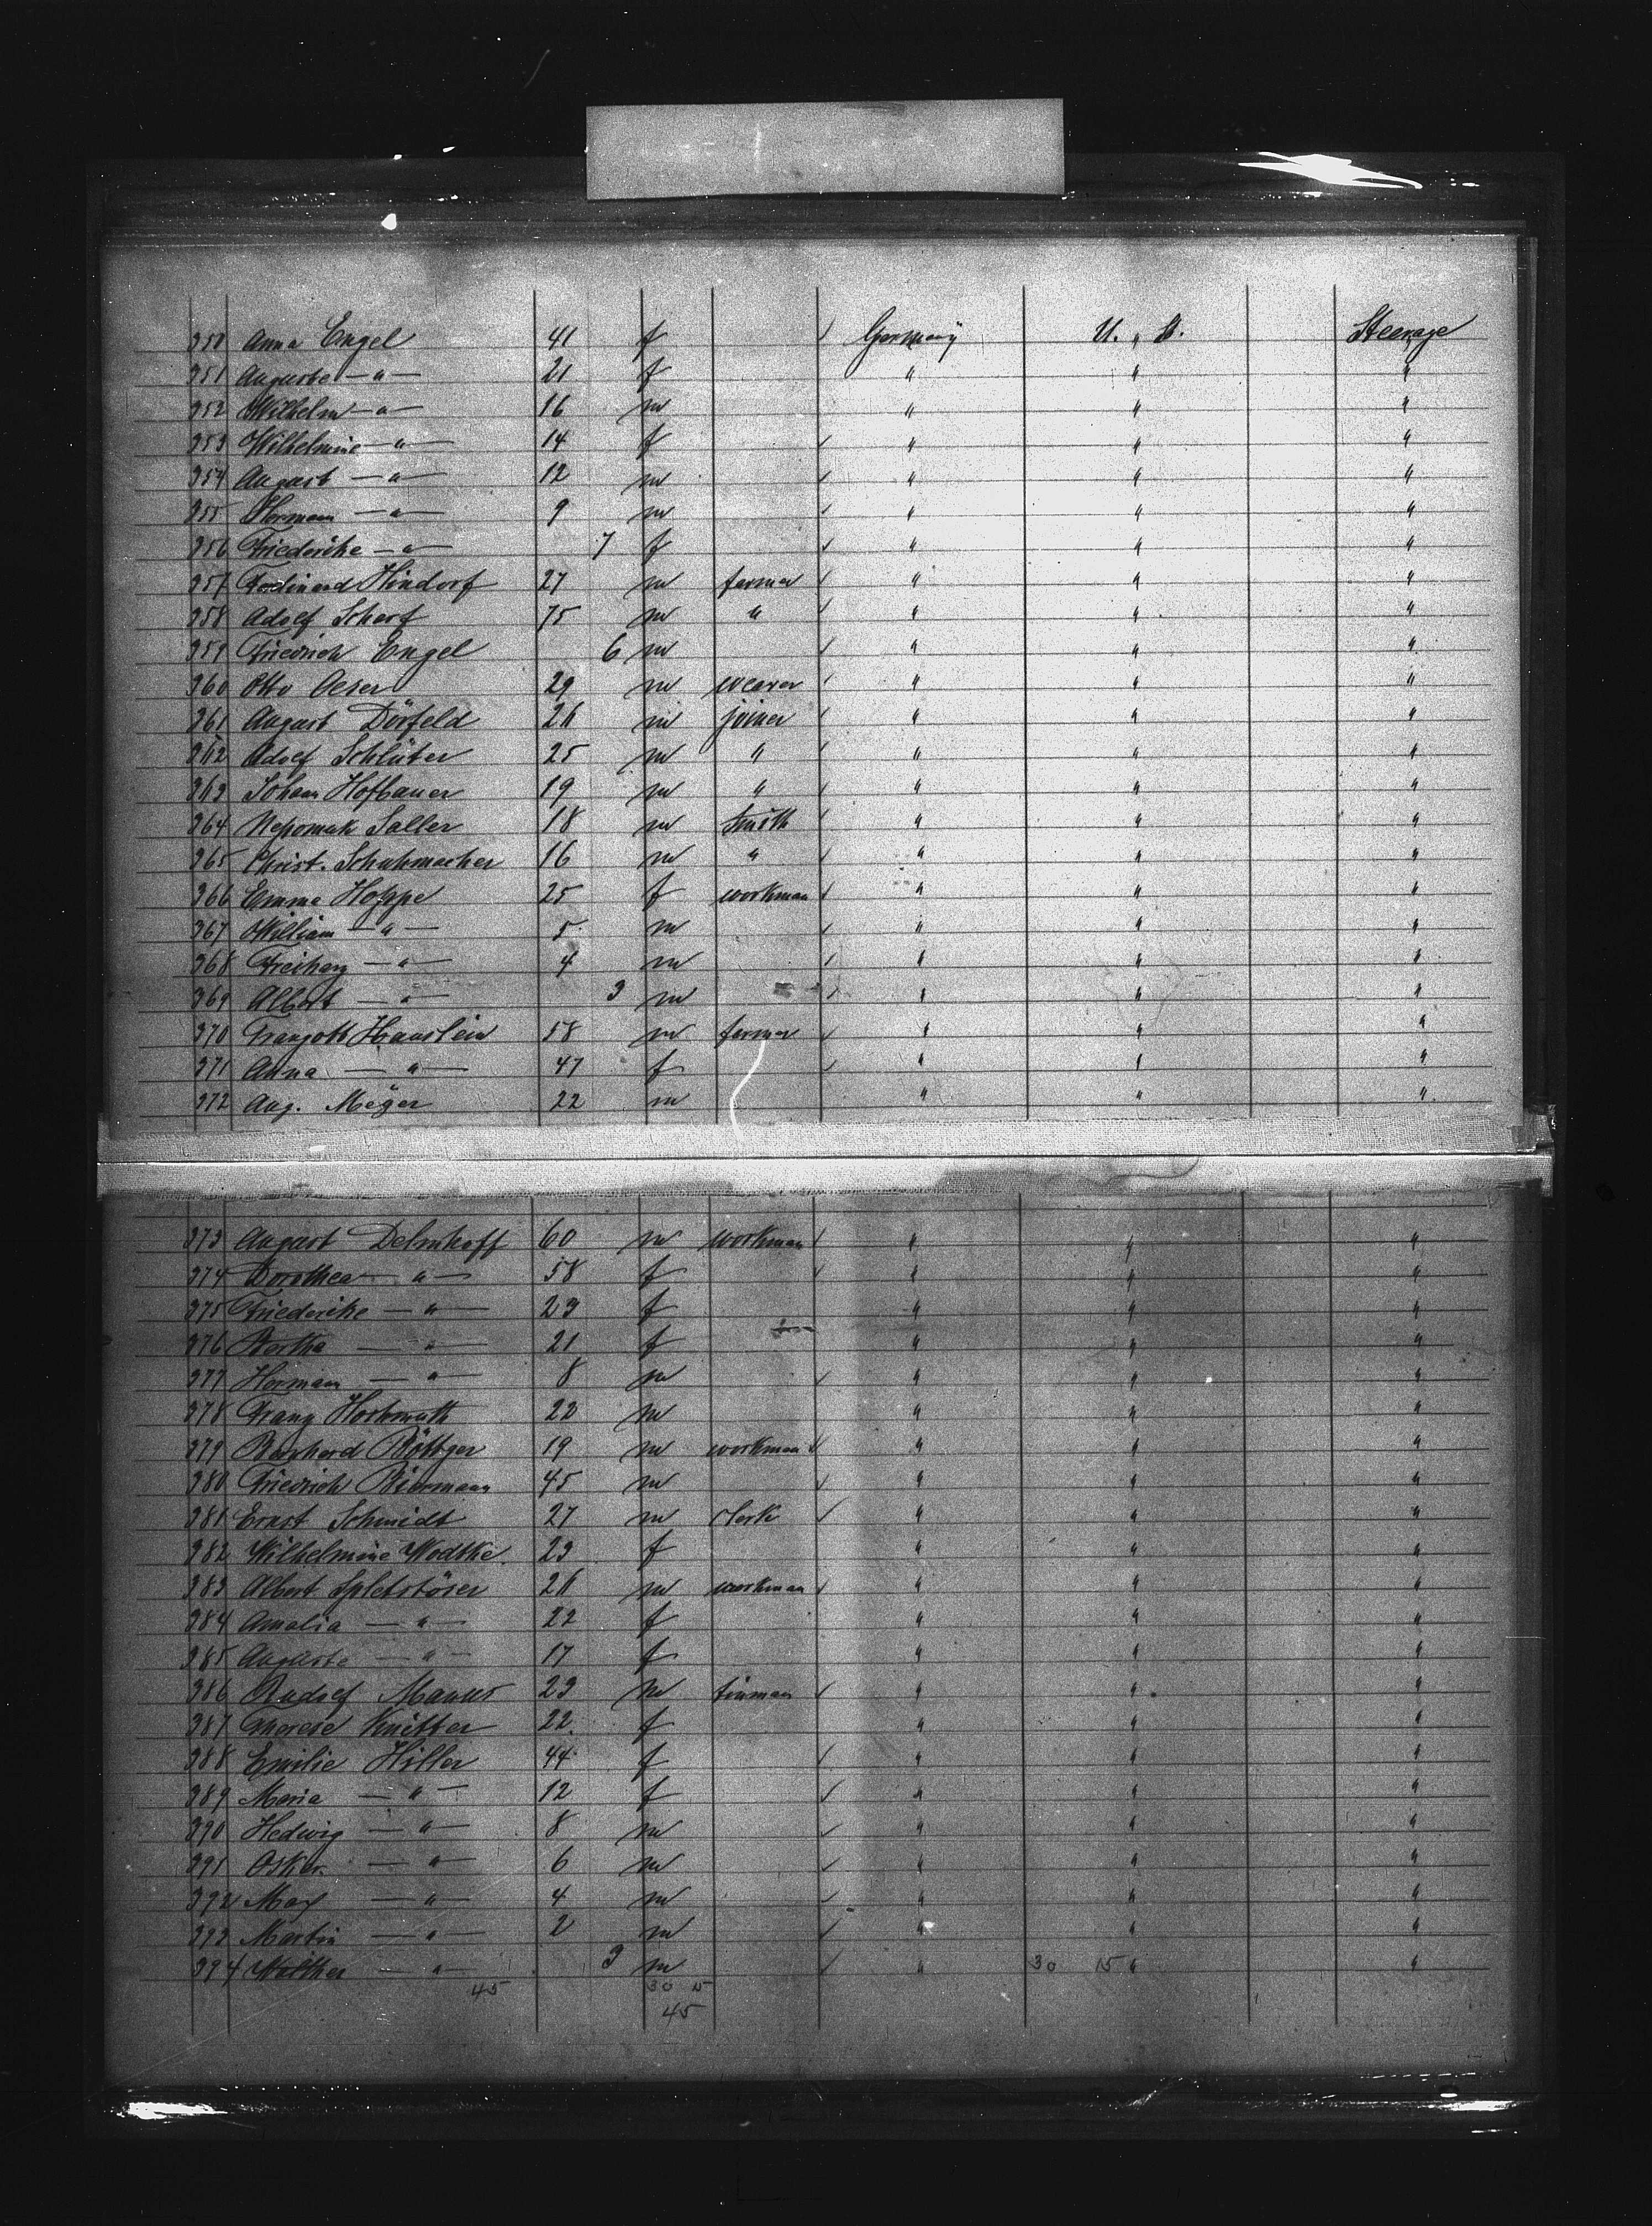 350 Anna Engel 41 f Germany U. S. Steerage
351 Auguste — " — 21 f " " "
352 Wilhelm — " — 16 m " " "
353 Wilhelmine — " — 14 f " " "
354 August — " — 12 m " " "
355 Herman — " — 9 m " " "
356 Friederike — " — 7 f " " "
357 Ferdinand Hindorf 27 m farmer " " "
358 Adolf Scherf 75 m " " " "
359 Friedrich Engel 6 m " " "
360 Otto Oeser 29 m weaver " " "
361 August Dörfeld 26 m joiner " " "
362 Adolf Schlüter 25 m " " " "
363 Johann Hofbauer 19 m " " " "
364 Nepomuk Saller 18 m Smith " " "
365 Christ. Schuhmacher 16 m " " " "
366 Emma Hoppe 25 f workman " " "
367 William — " — 5 m " " "
368 — " — 4 m " " "
369 Albert — " — 3 m " " "
370 Traugott Hauslein 58 m farmer " " "
371 Anna — " — 47 f " " "
372 Aug. Meÿer 22 m " " "
373 August Delmhoff 60 m workman " " "
374 Dorothea — " — 58 f " " "
375 Friederike — " — 23 f " " "
376 Bertha — " — 21 f " " "
377 Herman — " — 8 m " " "
378 Franz 22 m " " "
379 Bernhard Böttger 19 m workman " " "
380 Friedrich Biermann 45 m " " "
381 Ernst Schmidt 27 m clerk " " "
382 Wilhelmine Wodtke 23 f " " "
383 Albert Spletstöser 26 m workman " " "
384 Amalia — " — 22 f " " "
385 Auguste — " — 17 f " " "
386 Rudolf 23 m tinman " " "
387 Therese Knitter 22 f " " "
388 Emilie Hiller 44 f " " "
389 Maria — " — 12 f " " "
390 Hedwig — " — 8 m " " "
391 Oskar — " — 6 m " " "
392 Max — " — 4 m " " "
393 Martin — " — 2 m " " "
394 Walther — " — 3 m " 30 15 " "
45 30 15
45